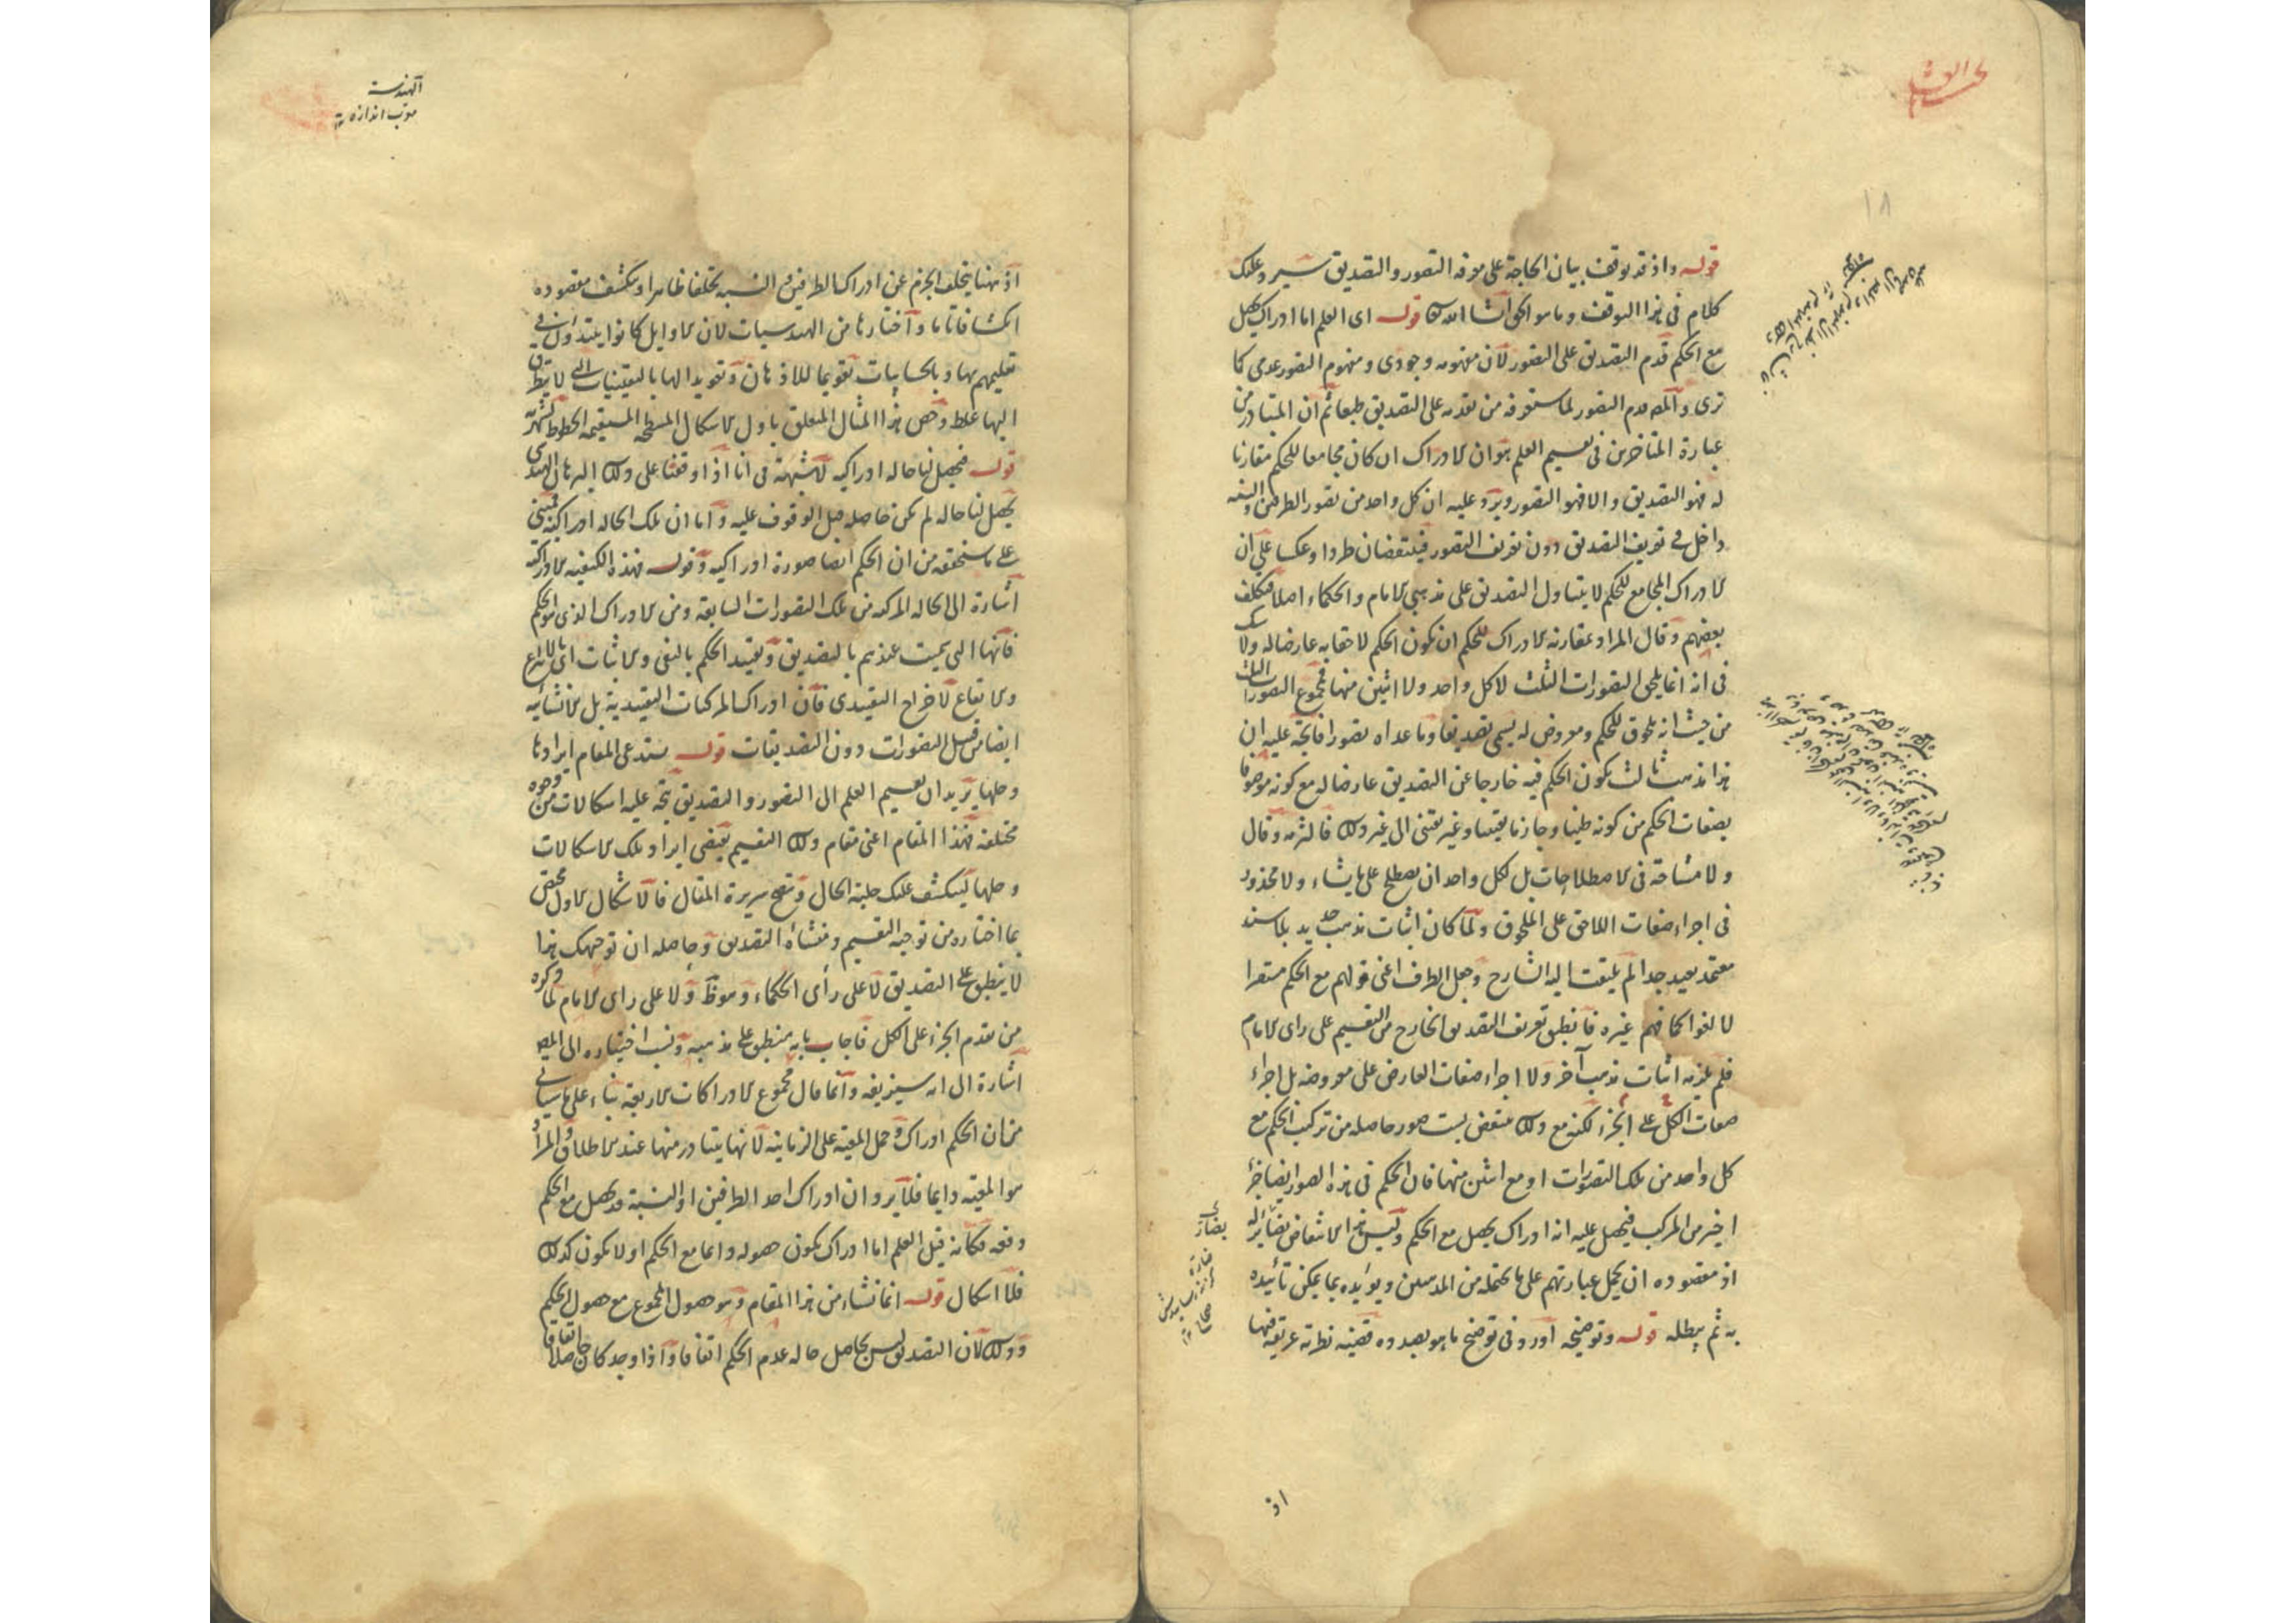 قوله واذ قد توقف بيان الحاجة على معرفة التصور والتصديق سيرد عليك
كلام في هذا التوقف وما هو الحق انشا الله تعالى قوله اى العلم اما ادراك يحصل
مع الحكم قدم التصديق على التصور لان مفهومه وجودى ومفهوم التصور عدمى كما
ترى والمصـ قدم التصور لما ستعرفه من تقدمه على التصديق طبعا ثم ان المتبادر من
عبارة المتاخرين في تقسيم العلم هو ان الادراك ان كان مجامعا للحكم مقارنا
له فهو التصديق والا فهو التصور ويرد عليه ان كل واحد من تصور الطرفين والنسبة
داخل في تعريف التصديق دون تعريف التصور فينتقضان طردا وعكسا على ان
الادراك المجامع للحكم لا يتناول التصديق على مذهبى الامام والحكماء اصلا فتكلف
بعضهم وقال المراد بمقارنة الادراك للحكم ان يكون الحكم لاحقا به عارضا له ولا شك
في انه انما يلحق التصورات الثلث لا كل واحد ولا اثنين منها فمجموع التصورات الثلث
من حيث انه ملحوق للحكم ومعروض له يسمى تصديقا وما عداه تصورا فاتجه عليه ان
هذا مذهب ثالث يكون الحكم فيه خارجا عن التصديق عارضا له مع كونه موصوفا
بصفات الحكم من كونه ظنيا وجازما يقينيا وغير يقينى الى غير ذلك فالتزمه وقال
ولا مشاحة في الاصطلاحات بل لكل واحد ان يصطلح على ما يشاء ولا محذور
في اجراء صفات اللاحق على الملحوق ولما كان اثبات مذهب جديد بلا سند
معتمد بعيد جدا لم يلتفت اليه الشارح وجعل الظرف اعنى قولهم مع الحكم مستقرا
لا لغوا كما فهم غيره فانطبق تعريف التصديق الخارج من التقسيم على راى الامام
فلم يلزمه اثبات مذهب آخر ولا اجراء صفات العارض على معروضه بل اجراء
صفات الكل على الجزء لكنه مع ذلك منقض بست صور حاصلة من تركيب الحكم مع
كل واحد من تلك التصورات او مع اثنين منها فان الحكم في هذه الصور ايضا جزء
اخير من المركب فيحصل عليه انه ادراك يحصل مع الحكم وليس هذا الانتقاض بضائر له
اذ مقصوده ان يحمل عبارتهم على ما يحتمله من المذهبين ويؤيده بما يمكن تأييده
به ثم يبطله قوله وتوضيحه اورد في توضيح ما هو بصدده قضية نظرية عريقة فيها
اذ
الهندسة
معرب اندازه ١٢
اذ ههنا يتخلف الجزم عن ادراك الطرفين والنسبة تخلفا ظاهرا وينكشف مقصوده
انكشافا تاما واختارها من الهندسيات لان الاوايل كانوا يبتدؤن في
تعليمهم بها وبالحسابيات تقويما للاذهان وتعويدا لها باليقينيات التى لا يتطرق
اليها غلط وخص هذا المثال المتعلق باول الاشكال المسطحة المستقيمة الخطوط لشهرته
قوله فيحصل لنا حالة ادراكية لا شبهة في انا اذا وقفنا على ذلك البرهان الهندسى
يحصل لنا حالة لم تكن حاصلة قبل الوقوف عليه واما ان تلك الحالة ادراكية فمبنى
على ما سنحققه من ان الحكم ايضا صورة ادراكية وقوله فهذه الكيفية الادراكية
اشارة الى الحالة المركبة من تلك التصورات السابقة ومن الادراك الذى هو الحكم
فانها التى سميت عندهم بالتصديق وتقييد الحكم بالنفى والاثبات اى بالانتزاع
والايقاع لاخراج التقييدى فان ادراك المركبات التقييدية بل الانشائية
ايضا من قبيل التصورات دون التصديقات قوله يستدعى المقام ايرادها
وحلها يريد ان تقسيم العلم الى التصور والتصديق يتجه عليه اشكالات من وجوه
مختلفة فهذا المقام اعنى مقام ذلك التقسيم يقتضى ايراد تلك الاشكالات
وحلها لينكشف عليك جلية الحال ويتضح سريرة المقال فالاشكال الاول مختص
بما اختاره من توجيه التقسيم ومنشأه التصديق وحاصله ان توجيهك هذا
لا ينطبق على التصديق لا على رأى الحكماء وهو ظ ولا على راى الامام لما ذكره
من تقدم الجزء على الكل فاجاب بانه منطبق على مذهبه ونسب اختياره الى المصـ
اشارة الى انه سيزيفه وانما قال مجموع الادراكات الاربعة بناء على ما سيأتى
من ان الحكم ادراك وحمل المعية على الزمانية لانها يتبادر منها عند الاطلاق والمراد
هو المعية دايما فلا يرد ان ادراك احد الطرفين او النسبة قد يحصل مع الحكم
دفعة فكانه قيل العلم اما ادراك يكون حصوله دايما مع الحكم او لا يكون كذلك
فلا اشكال قوله انما نشاء من هذا المقام وهو حصول المجموع مع حصول الحكم
وذلك لان التصديق ليس بحاصل حالة عدم الحكم اتفاقا واذا وجد كان حاصلا اتفاقا